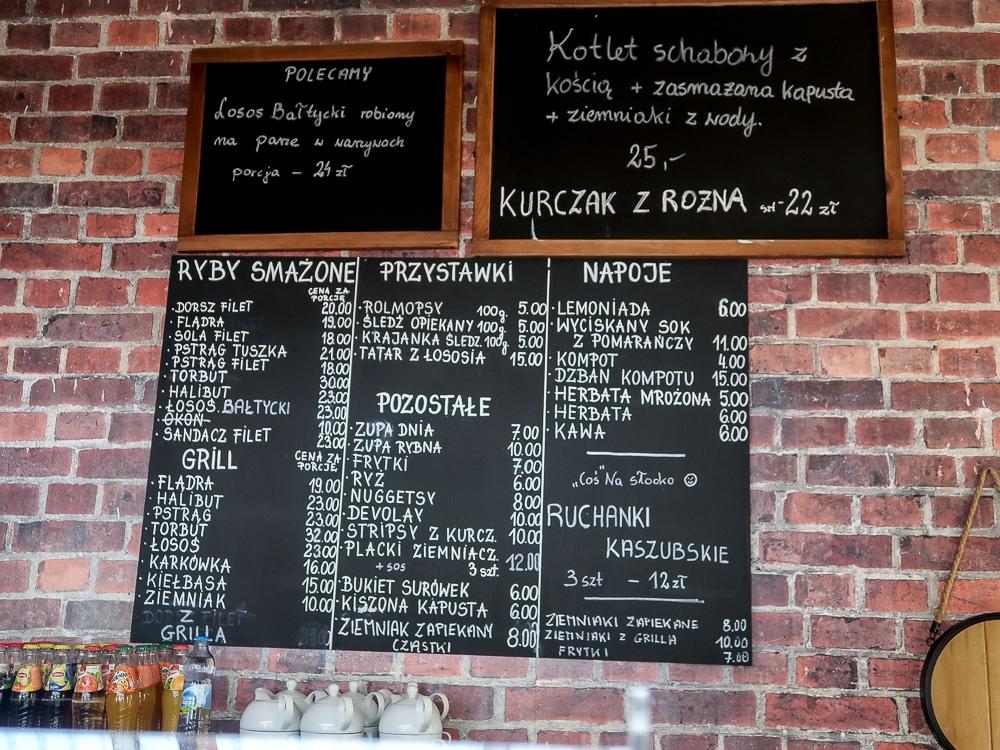 POLECAMY
Łosoś Bałtycki robiony
na parze w warzywach
porcja – 24 zł
Kotlet schabowy z
kością + zasmażana kapusta
+ ziemniaki z wody.
25,-
KURCZAK Z ROŻNA szt-22 zł
RYBY SMAŻONE
CENA ZA
PORCJE
· DORSZ FILET 20.00
· FLĄDRA 19.00
· SOLA FILET 18.00
· PSTRĄG TUSZKA 21.00
· PSTRĄG FILET 18.00
· TORBUT 30.00
· HALIBUT 23.00
· ŁOSOŚ BAŁTYCKI 23.00
· OKOŃ 10.00
· SANDACZ FILET 23.00
GRILL
CENA ZA
PORCJE
· FLĄDRA 19.00
· HALIBUT 23.00
· PSTRĄG 23.00
· TORBUT 32.00
· ŁOSOŚ 23.00
· KARKÓWKA 16.00
· KIEŁBASA 15.00
· ZIEMNIAK 10.00
Z
GRILLA
PRZYSTAWKI
· ROLMOPSY 100g. 5.00
· ŚLEDŹ OPIEKANY 100g. 5.00
· KRAJANKA ŚLEDZ. 100g. 5.00
· TATAR Z ŁOSOSIA 15.00
POZOSTAŁE
· ZUPA DNIA 7.00
· ZUPA RYBNA 10.00
· FRYTKI 7.00
· RYŻ 6.00
· NUGGETSY 8.00
· DEVOLAY 10.00
· STRIPSY Z KURCZ. 10.00
· PLACKI ZIEMNIACZ.
+ SOS 3 szt. 12.00
· BUKIET SURÓWEK 6.00
· KISZONA KAPUSTA 6.00
· ZIEMNIAK ZAPIEKANY 8.00
CZĄSTKI
NAPOJE
· LEMONIADA 6.00
· WYCISKANY SOK
Z POMARAŃCZY 11.00
· KOMPOT 4.00
· DZBAN KOMPOTU 15.00
· HERBATA MROŻONA 5.00
· HERBATA 6.00
· KAWA 6.00
„Coś" Na słodko ☺
RUCHANKI
KASZUBSKIE
3 szt – 12 zł
ZIEMNIAKI ZAPIEKANE 8.00
ZIEMNIAKI Z GRILLA 10.00
FRYTKI 7.00